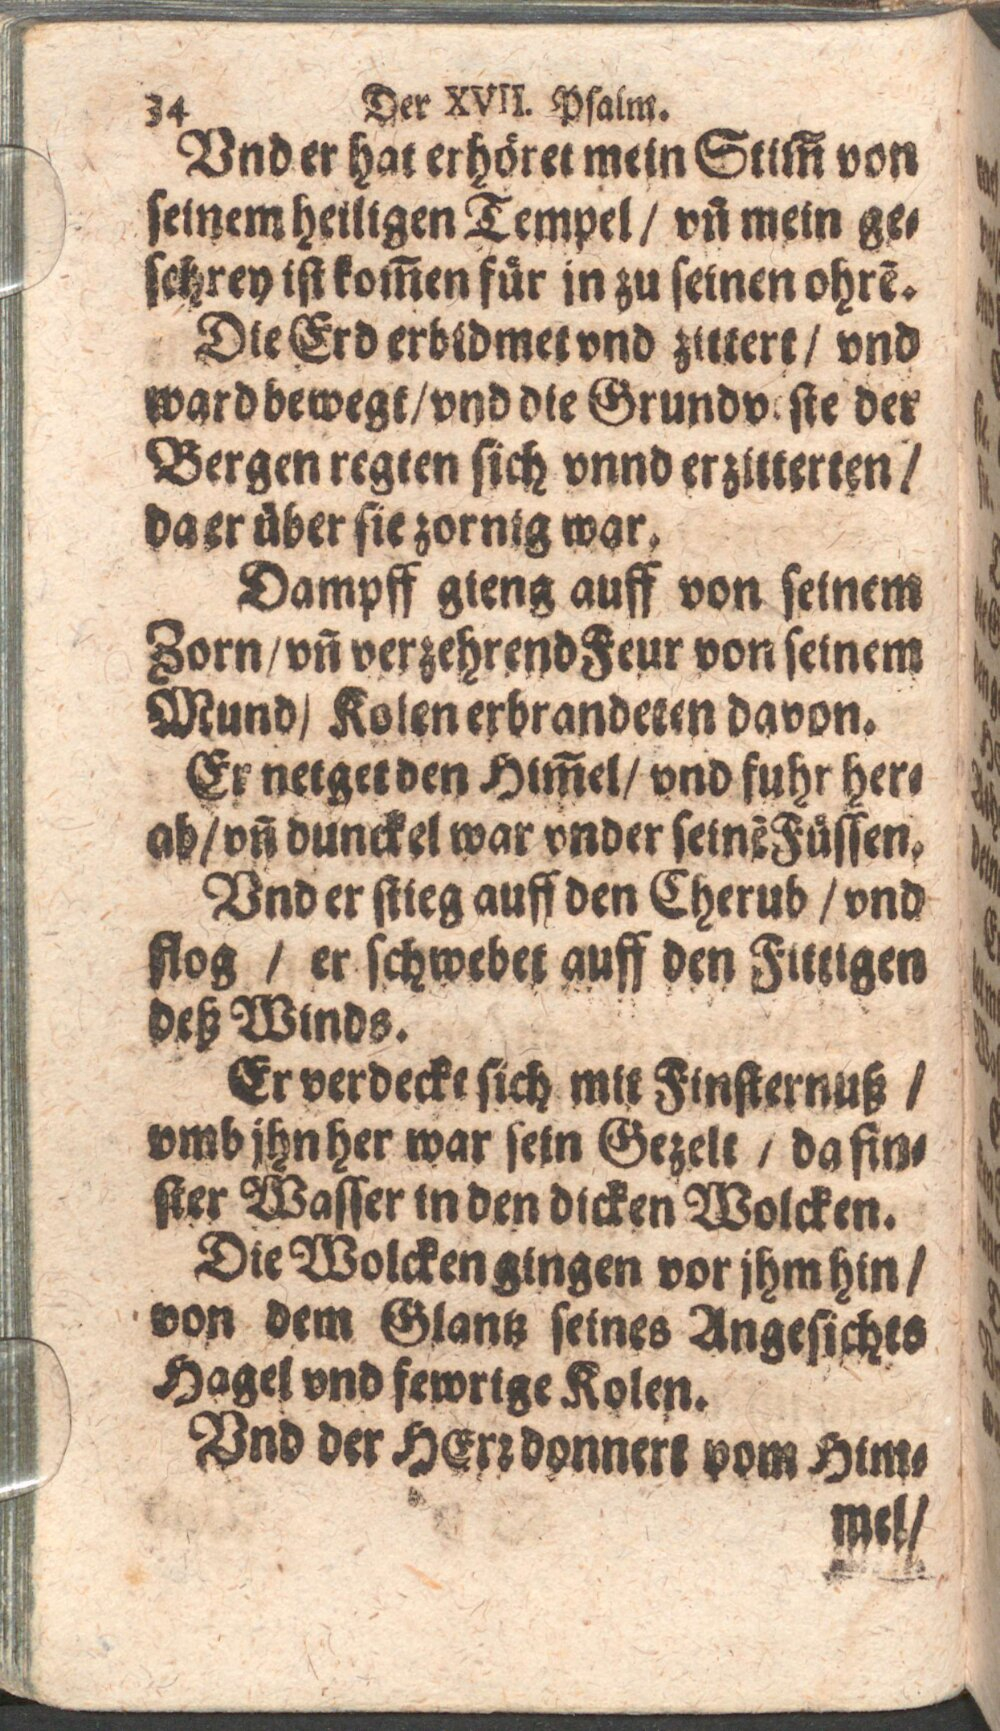 34 Der XVII. Psalm.
Vnd er hat erhöret mein Stim̃ von
seinem heiligen Tempel / vñ mein ge⸗
schrey ist kom̃en für jn zu seinen ohrẽ.
Die Erd erbidmet vnd zittert / vnd
ward bewegt / vnd die Grundv ste der
Bergen regten sich vnnd erzitterten /
da er über sie zornig war.
Dampff gieng auff von seinem
Zorn / vñ verzehrend Feur von seinem
Mund / Kolen erbrandeten davon.
Er neiget den Him̃el / vnd fuhr her⸗
ab / vñ dunckel war vnder seinẽ Füssen.
Vnd er stieg auff den Cherub / vnd
flog / er schwebet auff den Fittigen
deß Winds.
Er verdeckt sich mit Finsternuß /
vmb jhn her war sein Gezelt / da fin⸗
ster Wasser in den dicken Wolcken.
Die Wolcken gingen vor jhm hin /
von dem Glantz seines Angesichts
Hagel vnd fewrige Kolen.
Vnd der HErꝛ donnert vom Him⸗
mel /